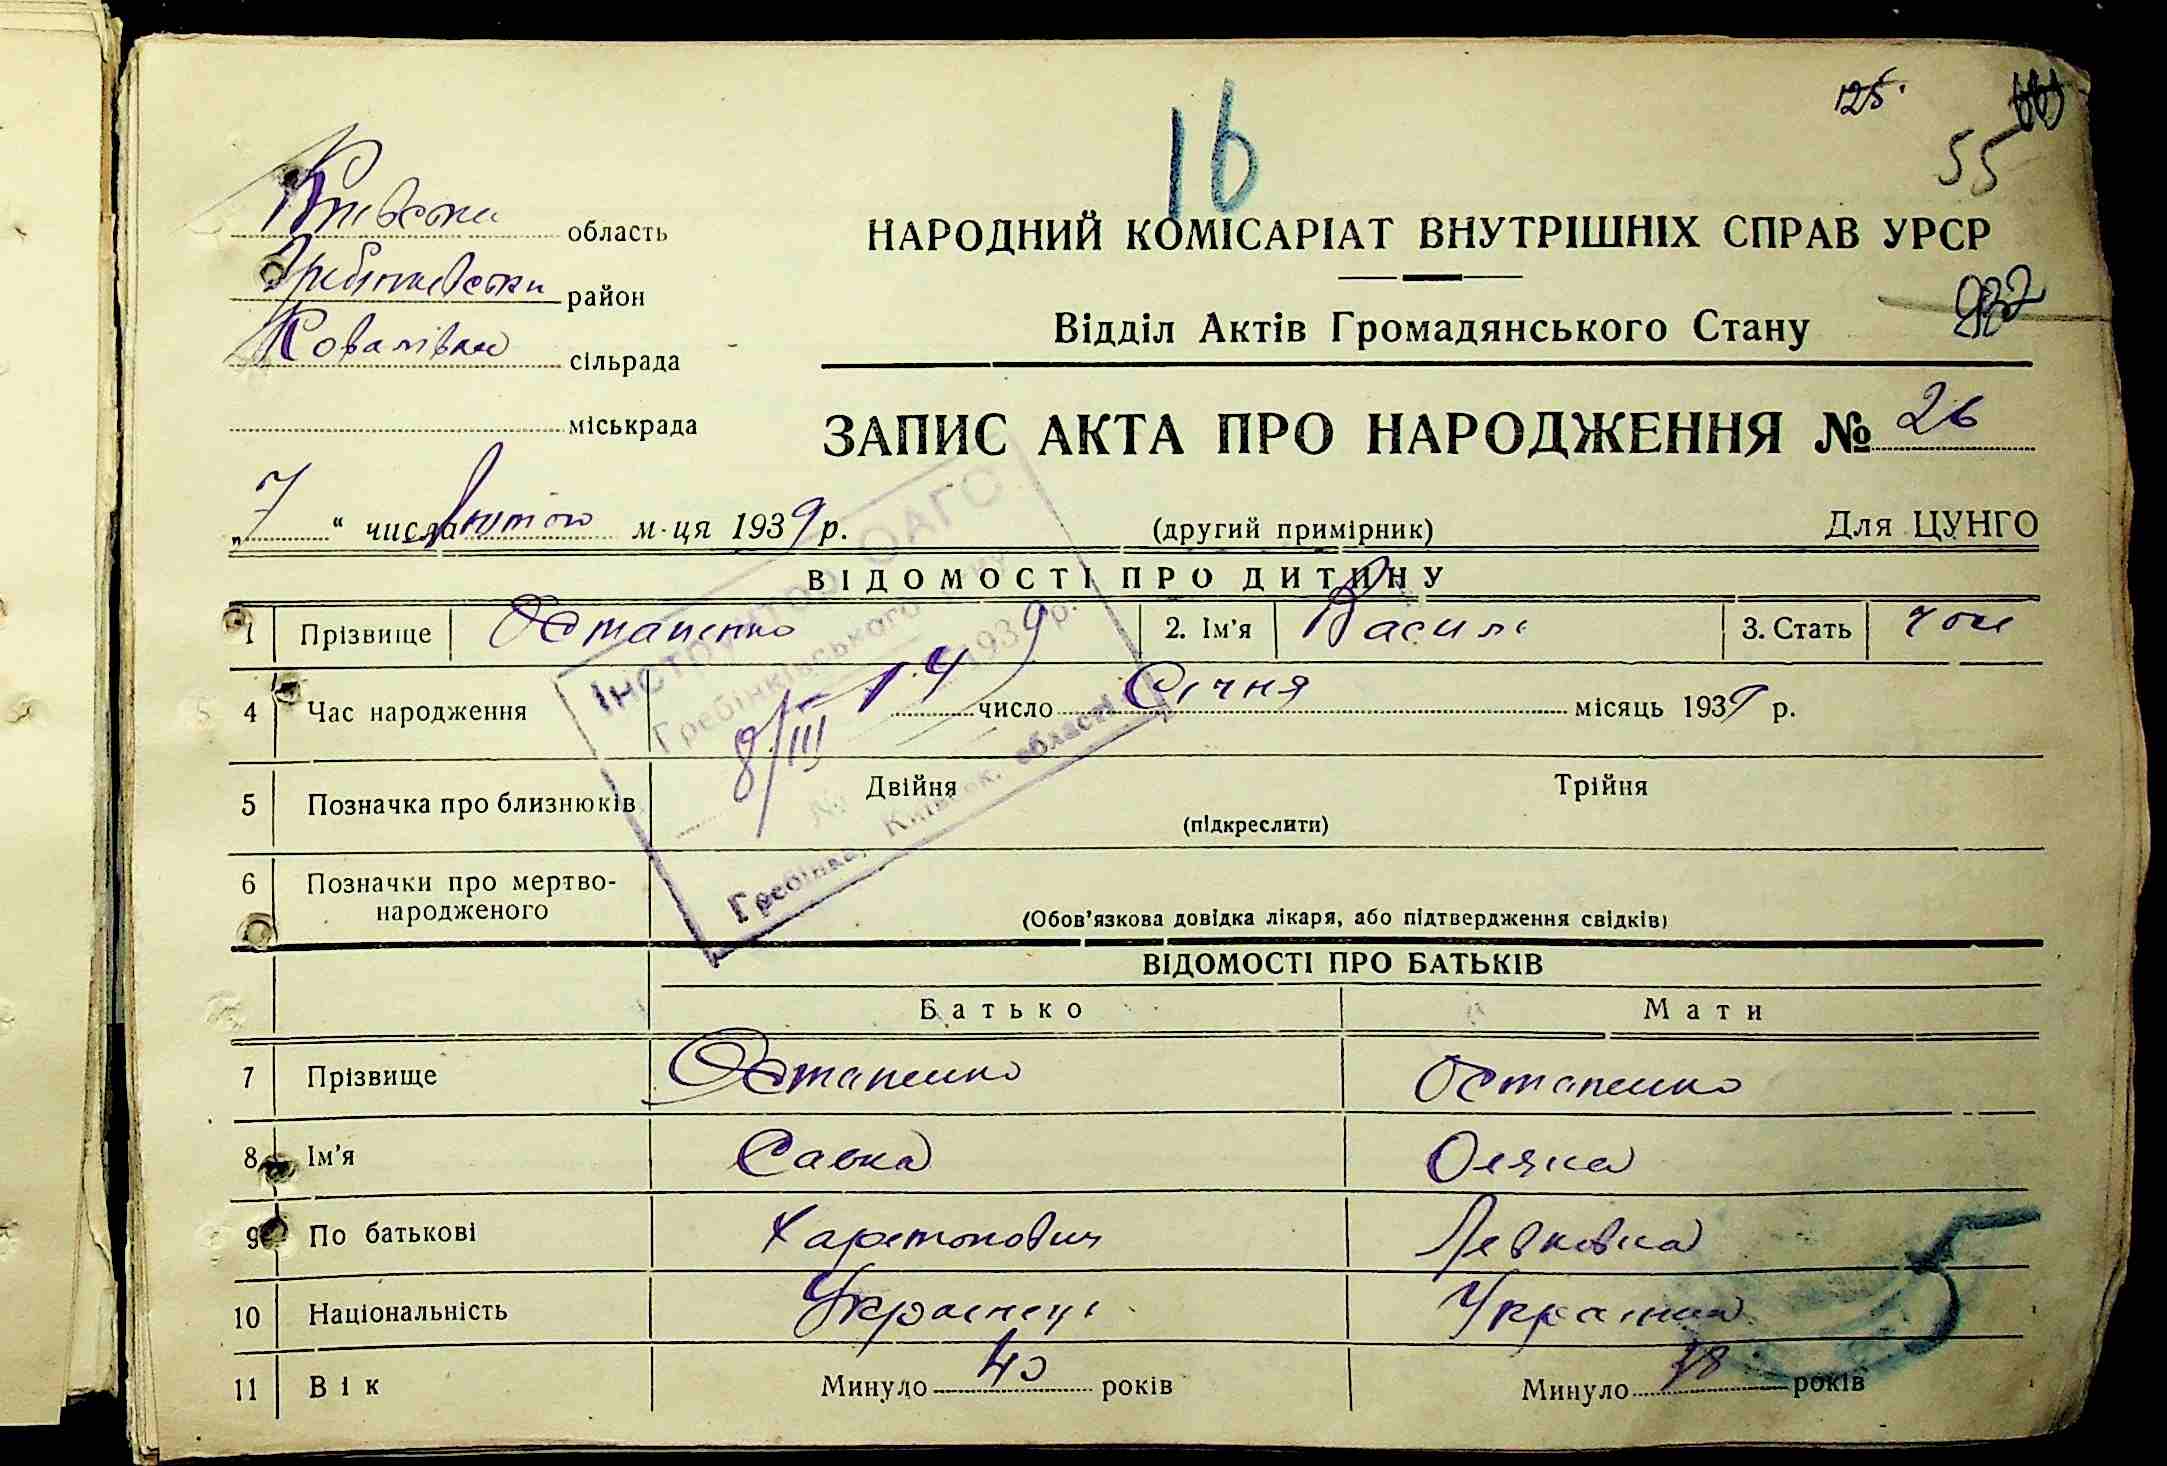 125.
16
55
Київська область
Гребінківський район
Ковалівка сільрада
міськрада
НАРОДНИЙ КОМІСАРІАТ ВНУТРІШНІХ СПРАВ УРСР
Відділ Актів Громадянського Стану
ЗАПИС АКТА ПРО НАРОДЖЕННЯ № 26
„ 7 “ числа лютого м-ця 1939 р.
(другий примірник)
Для ЦУНГО
ВІДОМОСТІ ПРО ДИТИНУ
1 Прізвище Остапенко 2. Ім'я Василь 3. Стать чол
4 Час народження 14 число Січня місяць 1939 р.
5 Позначка про близнюків Двійня Трійня
(підкреслити)
6 Позначки про мертво-
народженого
(Обов'язкова довідка лікаря, або підтвердження свідків)
Інструктор ОАГС
Гребінківського
8/III 1939 р.
№
Гребінка, Київськ. області
ВІДОМОСТІ ПРО БАТЬКІВ
Батько Мати
7 Прізвище Остапенко Остапенко
8 Ім'я Савка Оляна
9 По батькові Харетонович Левківна
10 Національність Українець Українка
11 Вік Минуло 40 років Минуло 38 років
5